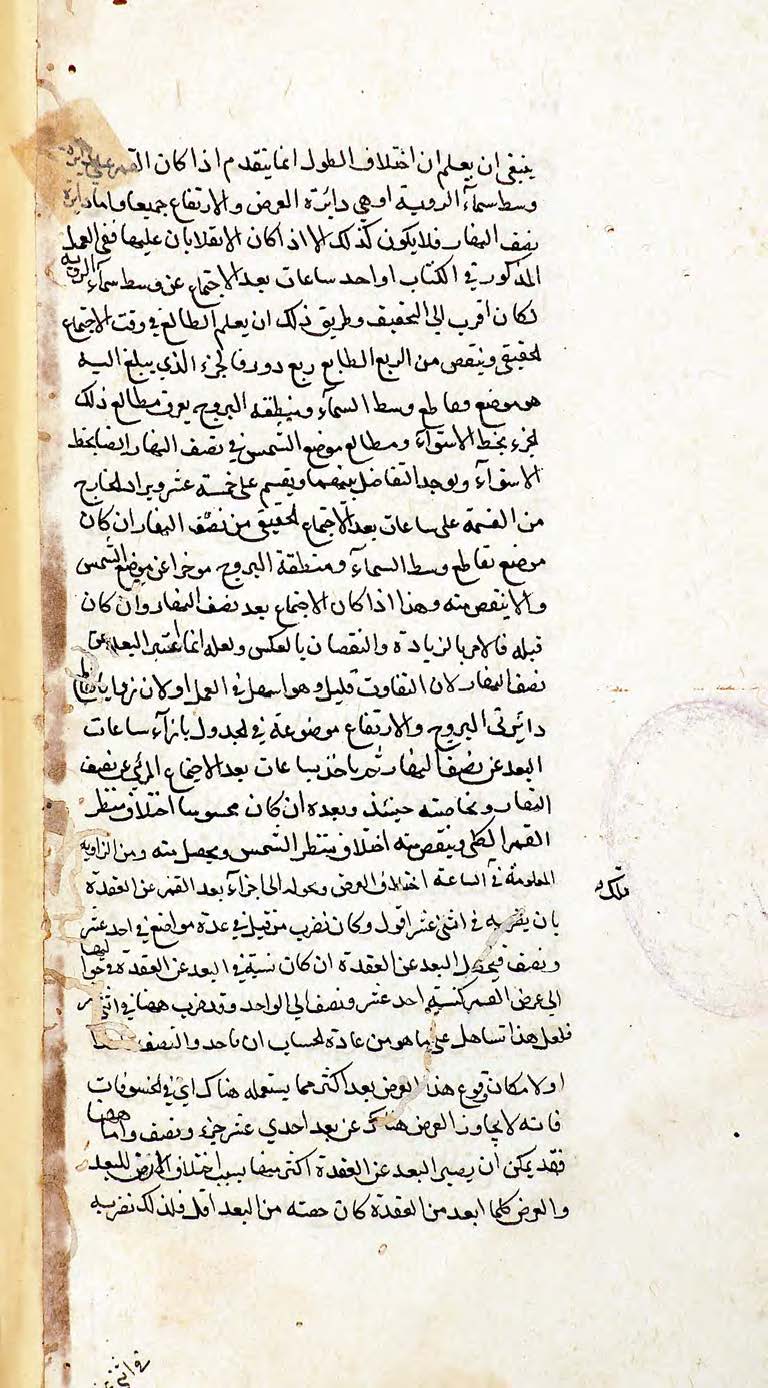 ينبغى ان يعلم ان اختلاف الطول انما ينعدم اذا كان القمر على دايرة
وسط سمآء الروية اوهي دائرة العرض والارتفاع جميعا واما دايرة
نصف النهار فلا يكون كذلك الا اذ اكان الانقلابان عليها ففى العمل
المذكور في الكتاب او احد ساعات بعد الاجتماع عن وسط سمآء الروية
لكان اقرب الى التحقيق وطريق ذلك ان يعلم الطالع في وقت الاجتماع
الحقيقى وينقص من الربع الطالع ربع دور فالجزء الذي يبلغ اليه
هو موضع تقاطع وسط السمآء ومنطقة البروج يعرف مطالع ذلك
الجزء بخط الاستوآء ومطالع موضع الشمس في نصف النهار ايضا بخط
الاستوآء ويوجد التفاضل بينهما ويقسم على خمسة عشر ويراد الخارج
من القسمة على ساعات بعد الاجتماع الحقيقى من نصف النهار ان كان
موضع تقاطع وسط السمآء ومنطقة البروج موخرا عن موضع الشمس
والا ينقص منه وهذا اذا كان الاجتماع بعد نصف النهار وان كان
قبله فالامر بالزيادة والنقصان بالعكس ولعله انما اعتبر البعد عن
نصف النهار لان التفاوت قليل وهو اسهل في العمل او لان زوايا تقاطع
دائرتى البروج والارتفاع موضوعة في الجدول بازآء ساعات
البعد عن نصف النهار ثم ياخذ بساعات بعد الاجتماع المرئي عن نصف
النهار وبخاصته حينئذ وبعده ان كان محسوسا اختلاف منظر
القمر الكلى وينقص منه اختلاف منظر الشمس ويحصل منه ومن الزاوية
المعلومة في الساعة اختلاف العرض ويحوله الى اجزآء بعد القمر عن العقدة
فلك
بان يضربه في اثنى عشر اقول وكان يضرب من قبل في عدة مواضع في احد عشر
ونصف فيحصل البعد عن العقدة ان كان نسبة البعد عن العقدة في حواليها
الى عرض القمر كنسبة احد عشر ونصف الى الواحد وقد ضرب ههنا في اثنى عشر
فلعل هذا تساهل على ما هو من عادة الحساب ان ياحد والنصف
او لامكان وقوع هذا العرض بعد اكثر مما يستعمله هناك اى في الخسوفات
فانه لا يجاوز العرض هناك عن بعد احدي عشر جزء ونصف واما ههنا
فقد يمكن ان يصير البعد عن العقدة اكثر منها بسبب اختلاف العرض للبعد
والعرض كلما ابعد من العقدة كان حصته من البعد اقل فلذلك نضربه
في اثنى عشر